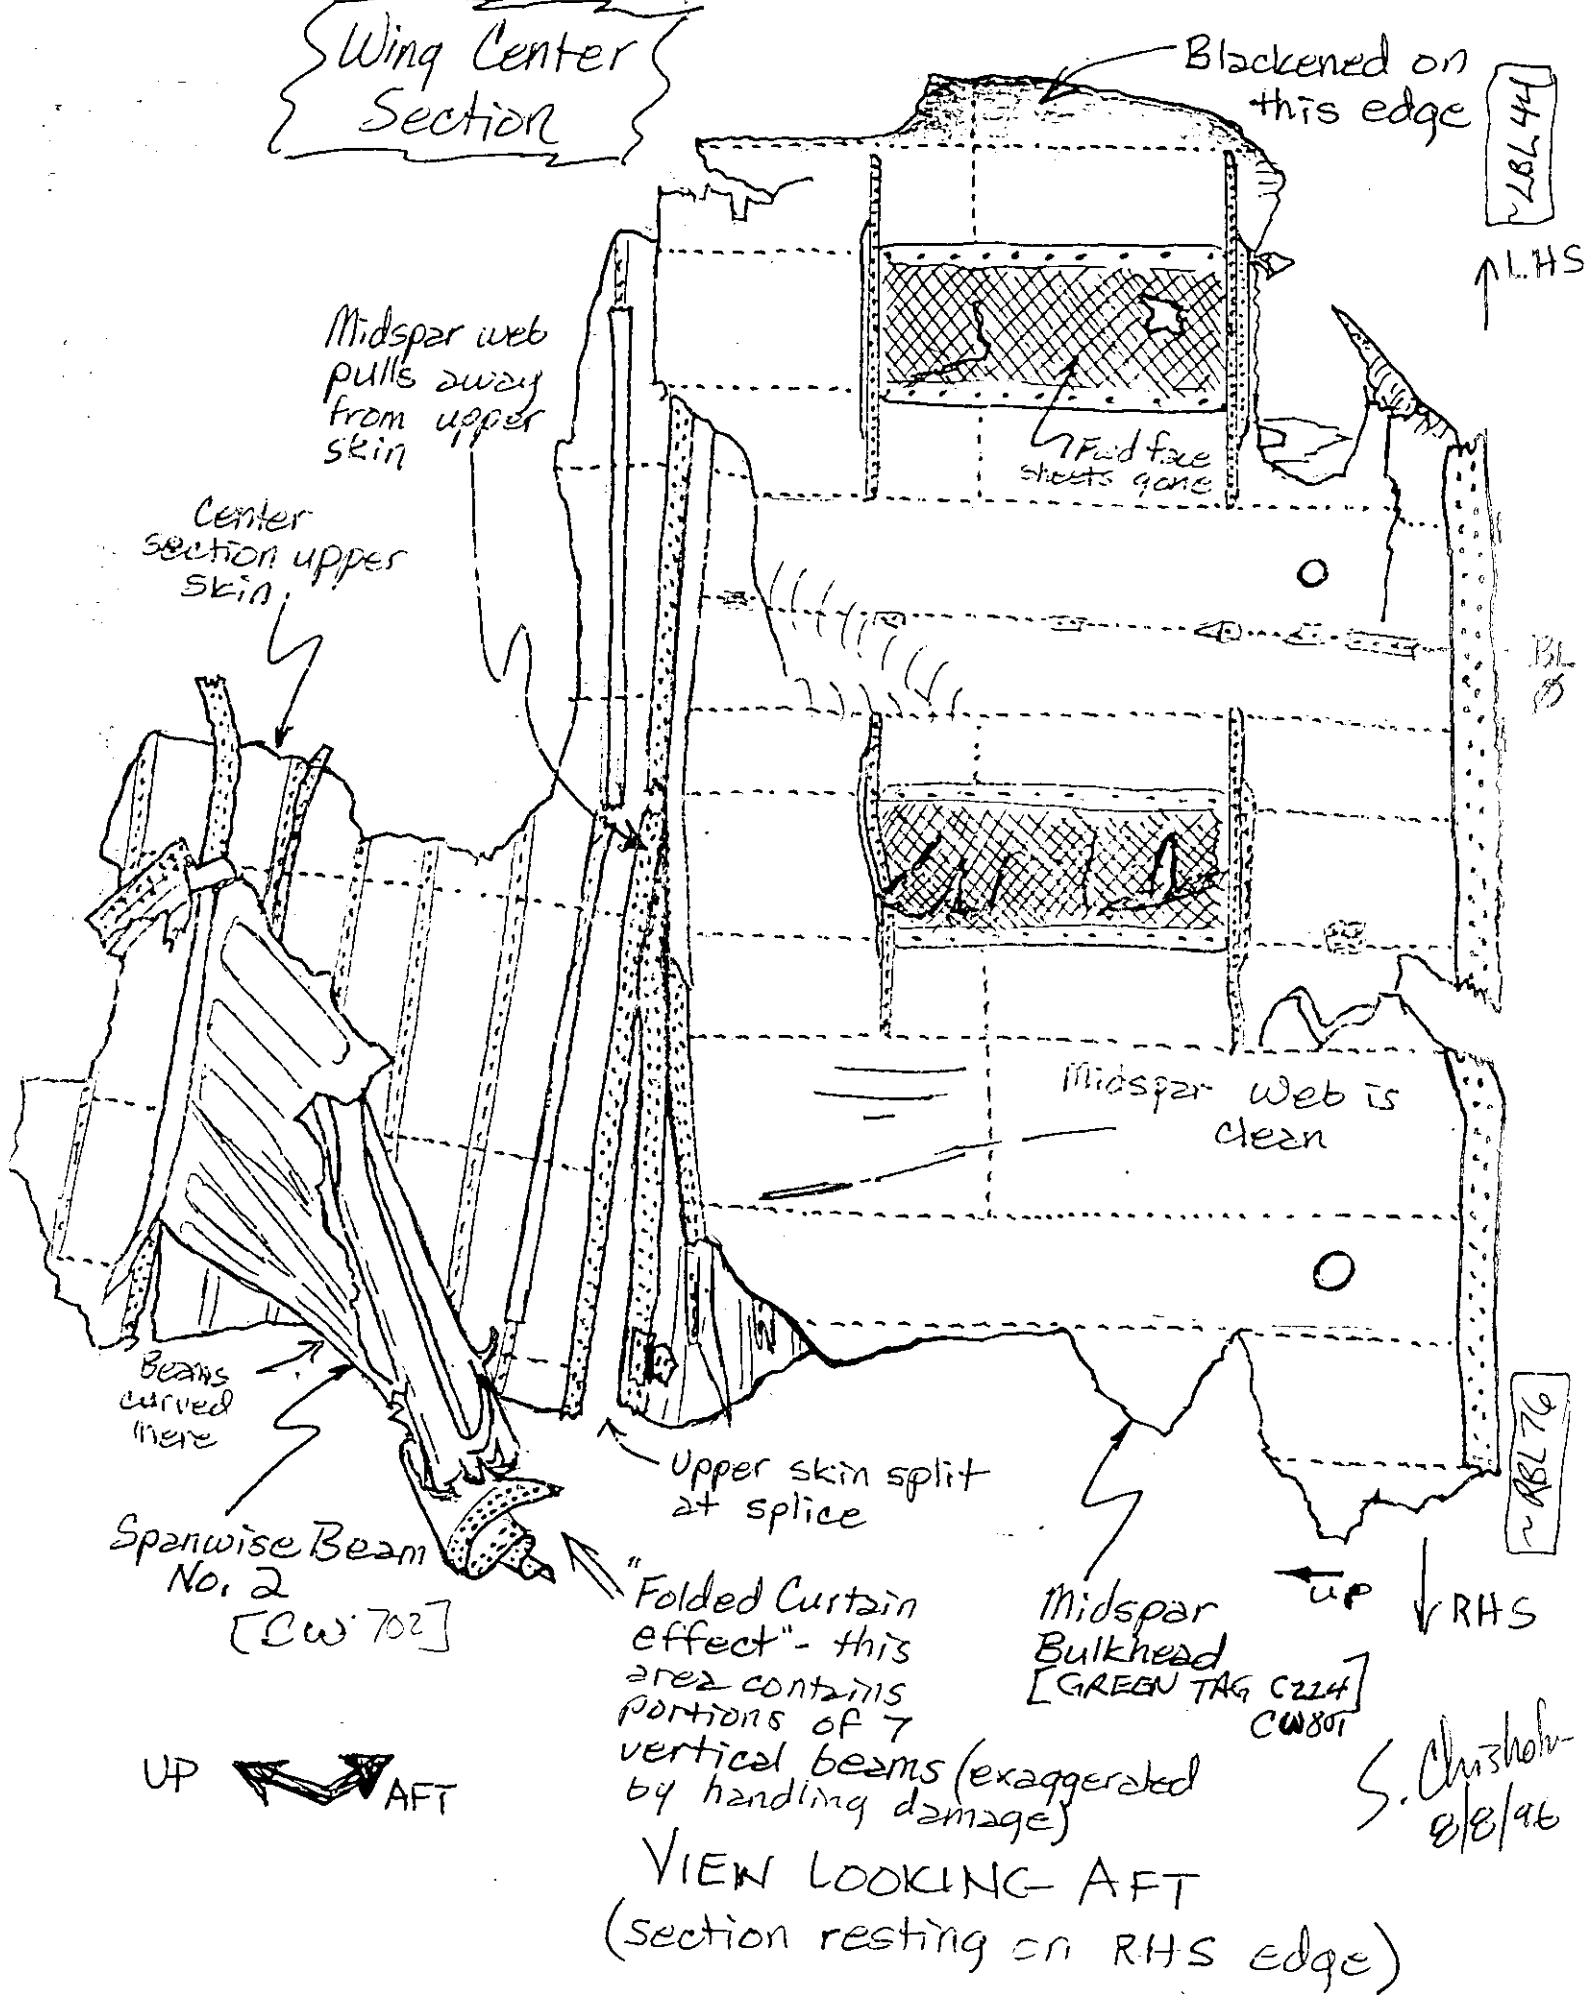 Wing Center
Section
Blackened on
this edge
~LBL 44
LHS
Midspar web
pulls away
from upper
skin
Fwd face
sheets gone
Center
section upper
skin
BL
Ø
Midspar web is
clean
Beams
curved
here
Upper skin split
at splice
~RBL 76
Spanwise Beam
No. 2
[CW 702]
"Folded Curtain
effect" - this
area contains
portions of 7
vertical beams (exaggerated
by handling damage)
Midspar
Bulkhead
[GREEN TAG C224]
CW801
UP
RHS
UP
AFT
S. Chisholm
8/8/96
VIEW LOOKING AFT
(section resting on RHS edge)